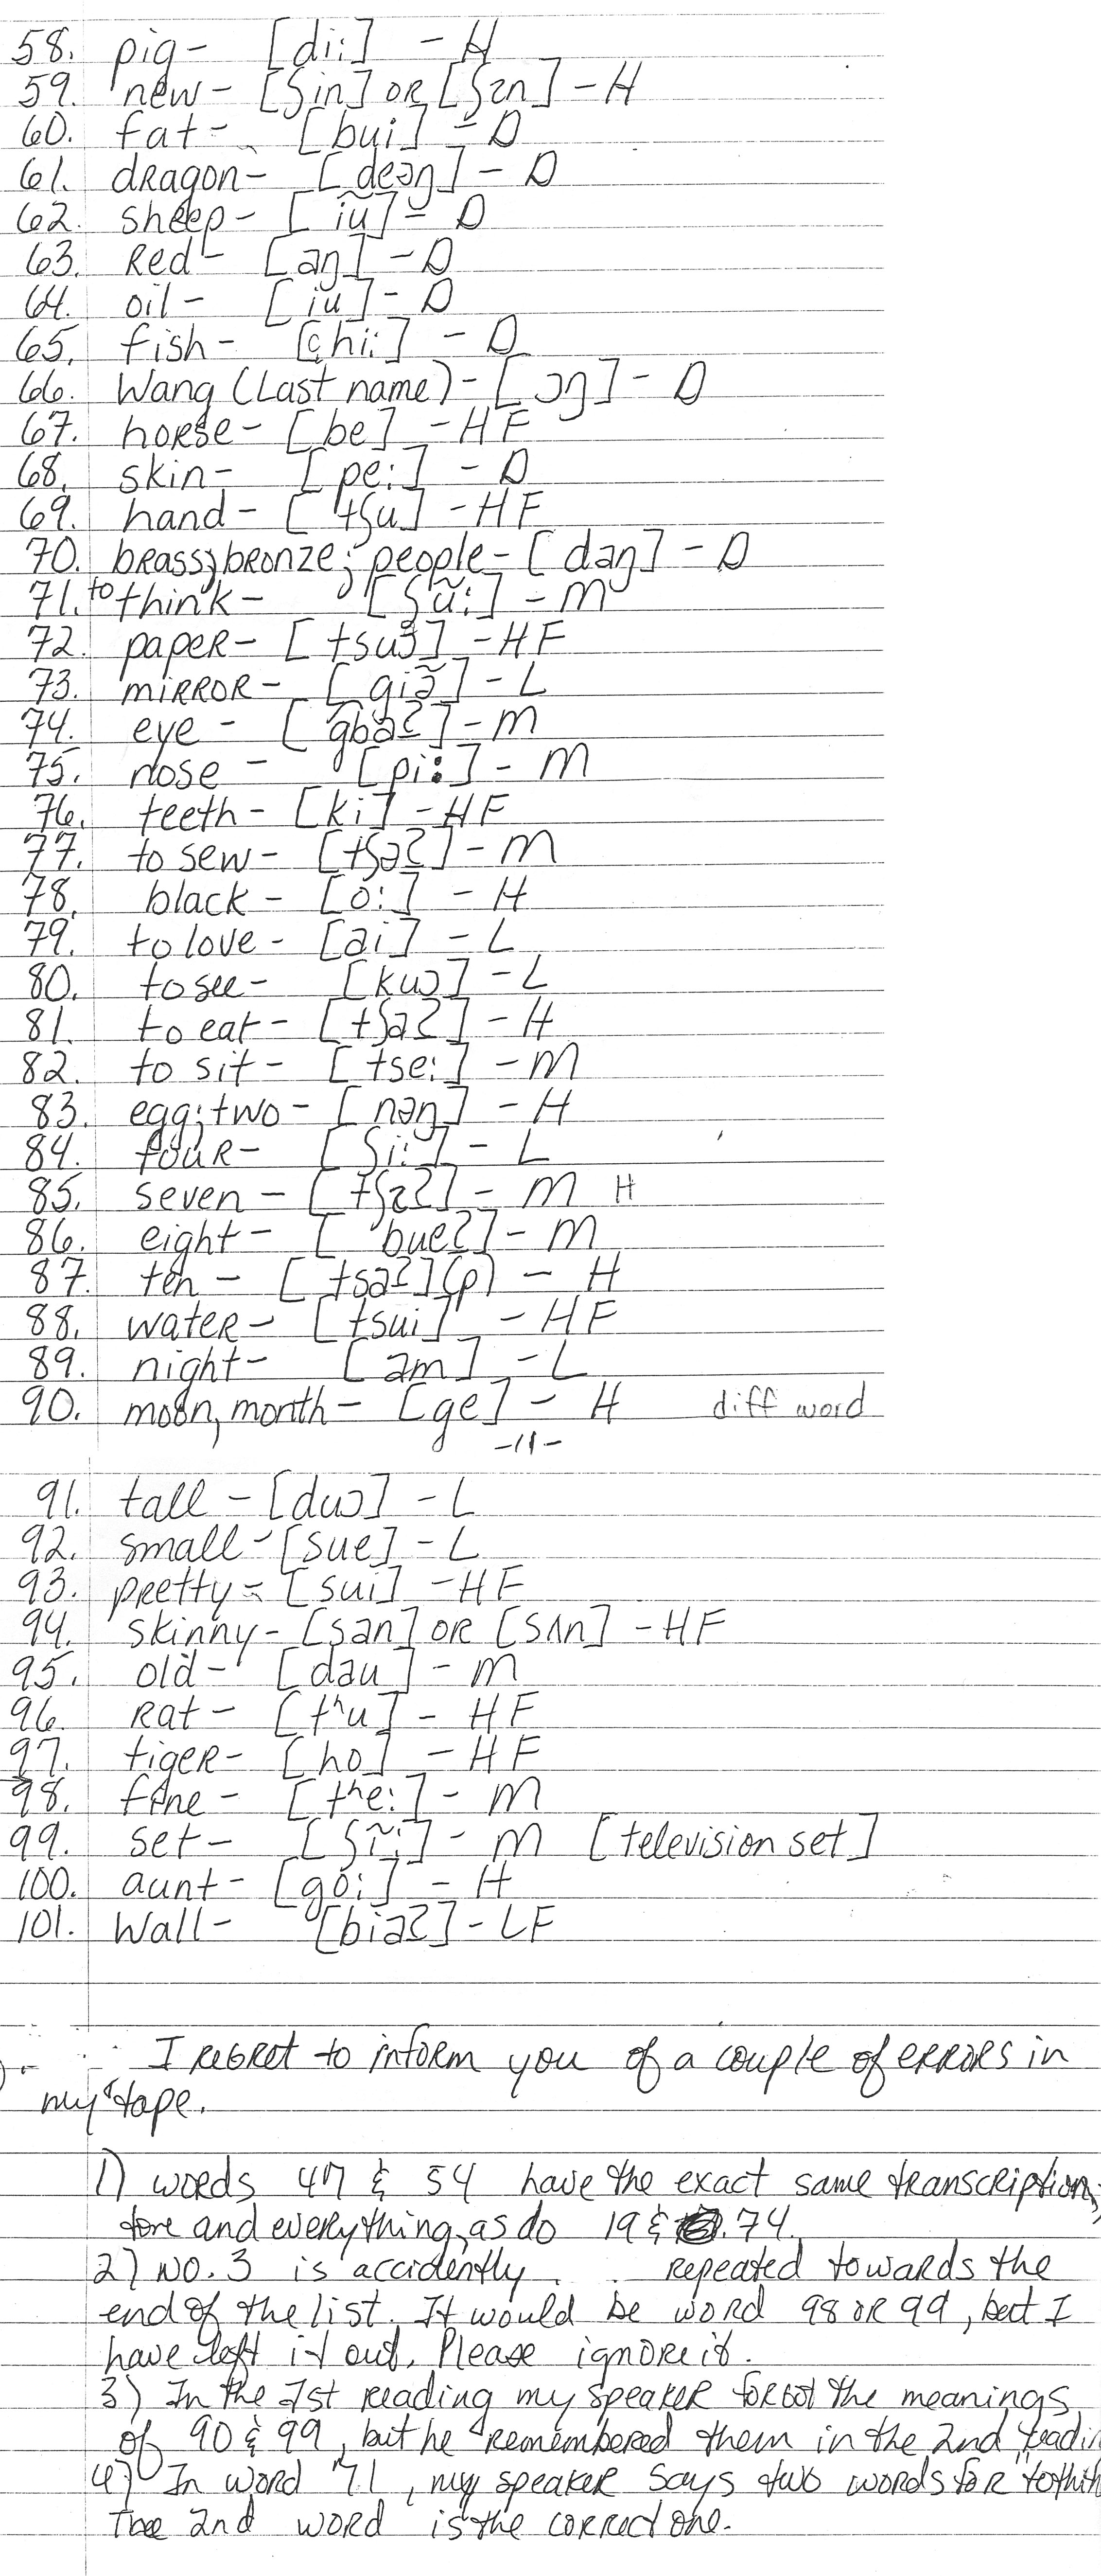 58. pig - [di:] - H
59. new - [ʃin] OR [ʃɪn] - H
60. fat - [bui] - D
61. dragon - [deəŋ] - D
62. sheep - [ĩũ] - D
63. Red - [aŋ] - D
64. oil - [iu] - D
65. fish - [hi:] - D
66. Wang (Last name) - [ɔŋ] - D
67. horse - [be] - HF
68. skin - [pe:] - D
69. hand - [tʃu] - HF
70. brass; bronze; people - [daŋ] - D
71. to think - [ʃũ:] - M
72. paper - [tsuɜ] - HF
73. mirror - [giã] - L
74. eye - [gbaʔ] - M
75. nose - [pi:] - M
76. teeth - [ki] - HF
77. to sew - [tʃaʔ] - M
78. black - [o:] - H
79. to love - [ai] - L
80. to see - [kuɔ] - L
81. to eat - [tʃaʔ] - H
82. to sit - [tse:] - M
83. egg; two - [nəŋ] - H
84. four - [ʃi:] - L
85. seven - [tʃɪʔ] - M H
86. eight - [bueʔ] - M
87. ten - [tsaʔ](p) - H
88. water - [tsui] - HF
89. night - [am] - L
90. moon, month - [ge] - H diff word
-11-
91. tall - [duɔ] - L
92. small - [sue] - L
93. pretty - [sui] - HF
94. skinny - [san] OR [sʌn] - HF
95. old - [dau] - M
96. Rat - [tʰu] - HF
97. tiger - [ho] - HF
98. fine - [tʰe:] - M
99. set - [ʃĩ:] - M [television set]
100. aunt - [go:] - H
101. Wall - [biaʔ] - LF
I regret to inform you of a couple of errors in
my tape.
1) words 47 & 54 have the exact same transcription,
tone and everything, as do 19 & 74.
2) No. 3 is accidently repeated towards the
end of the list. It would be word 98 OR 99, but I
have left it out. Please ignore it.
3) In the 1st reading my speaker forgot the meanings
of 90 & 99, but he remembered them in the 2nd readin
4) In word 71, my speaker says two words for to thin
The 2nd word is the correct one.